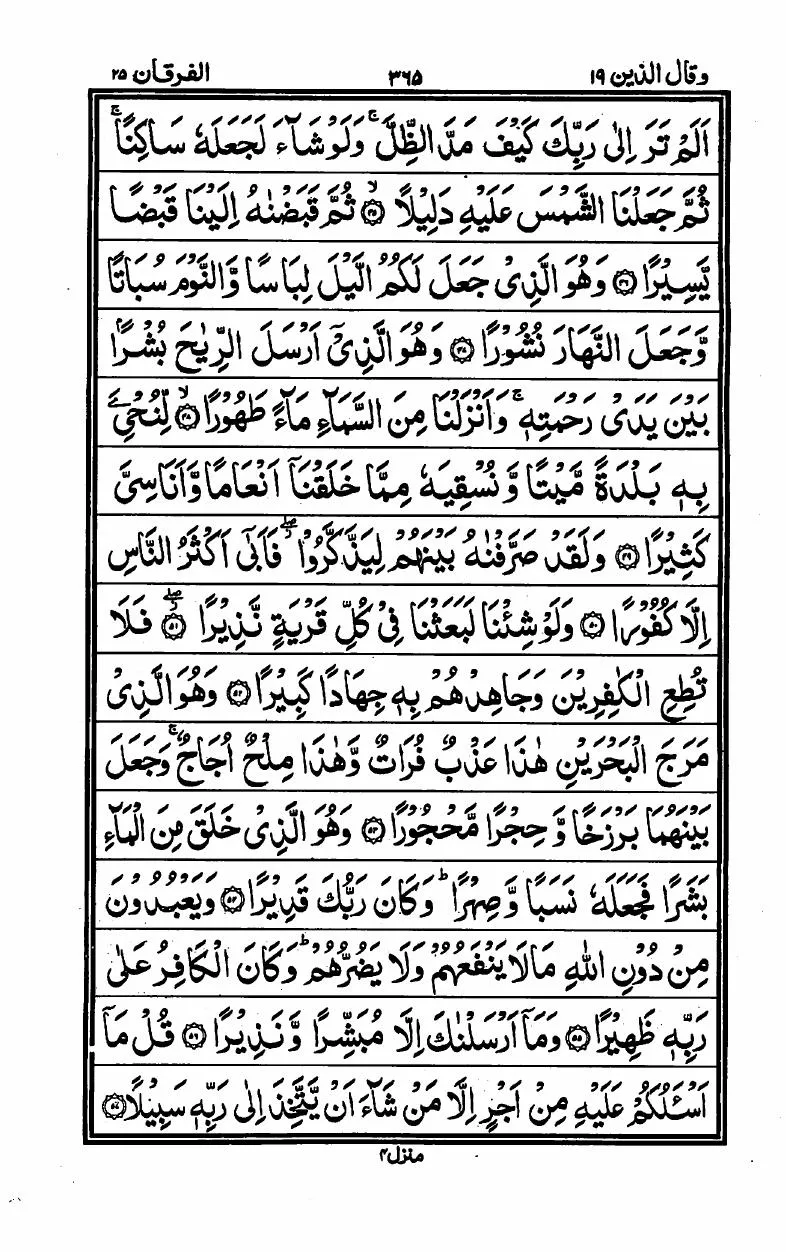 وقال الذين ١٩
٣٦٥
الفرقان ٢٥
اَلَمْ تَرَ اِلٰى رَبِّكَ كَيْفَ مَدَّ الظِّلَّ ۚ وَلَوْ شَآءَ لَجَعَلَهٗ سَاكِنًا ۚ
ثُمَّ جَعَلْنَا الشَّمْسَ عَلَيْهِ دَلِيْلًا ۙ﴿۴۵﴾ ثُمَّ قَبَضْنٰهُ اِلَيْنَا قَبْضًا
يَّسِيْرًا ﴿۴۶﴾ وَهُوَ الَّذِىْ جَعَلَ لَكُمُ الَّيْلَ لِبَاسًا وَّالنَّوْمَ سُبَاتًا
وَّجَعَلَ النَّهَارَ نُشُوْرًا ﴿۴۷﴾ وَهُوَ الَّذِىْۤ اَرْسَلَ الرِّيٰحَ بُشْرًۢا
بَيْنَ يَدَىْ رَحْمَتِهٖ ۚ وَاَنْزَلْنَا مِنَ السَّمَآءِ مَآءً طَهُوْرًا ۙ﴿۴۸﴾ لِّنُحْىِۦَ
بِهٖ بَلْدَةً مَّيْتًا وَّنُسْقِيَهٗ مِمَّا خَلَقْنَاۤ اَنْعَامًا وَّاَنَاسِىَّ
كَثِيْرًا ﴿۴۹﴾ وَلَقَدْ صَرَّفْنٰهُ بَيْنَهُمْ لِيَذَّكَّرُوْا ۖ فَاَبٰٓى اَكْثَرُ النَّاسِ
اِلَّا كُفُوْرًا ﴿۵۰﴾ وَلَوْ شِئْنَا لَبَعَثْنَا فِىْ كُلِّ قَرْيَةٍ نَّذِيْرًا ۖ﴿۵۱﴾ فَلَا
تُطِعِ الْكٰفِرِيْنَ وَجَاهِدْهُمْ بِهٖ جِهَادًا كَبِيْرًا ﴿۵۲﴾ وَهُوَ الَّذِىْ
مَرَجَ الْبَحْرَيْنِ هٰذَا عَذْبٌ فُرَاتٌ وَّهٰذَا مِلْحٌ اُجَاجٌ ۚ وَجَعَلَ
بَيْنَهُمَا بَرْزَخًا وَّحِجْرًا مَّحْجُوْرًا ﴿۵۳﴾ وَهُوَ الَّذِىْ خَلَقَ مِنَ الْمَآءِ
بَشَرًا فَجَعَلَهٗ نَسَبًا وَّصِهْرًا ؕ وَكَانَ رَبُّكَ قَدِيْرًا ﴿۵۴﴾ وَيَعْبُدُوْنَ
مِنْ دُوْنِ اللّٰهِ مَا لَا يَنْفَعُهُمْ وَلَا يَضُرُّهُمْ ؕ وَكَانَ الْكَافِرُ عَلٰى
رَبِّهٖ ظَهِيْرًا ﴿۵۵﴾ وَمَاۤ اَرْسَلْنٰكَ اِلَّا مُبَشِّرًا وَّنَذِيْرًا ﴿۵۶﴾ قُلْ مَاۤ
اَسْـَٔلُكُمْ عَلَيْهِ مِنْ اَجْرٍ اِلَّا مَنْ شَآءَ اَنْ يَّتَّخِذَ اِلٰى رَبِّهٖ سَبِيْلًا ﴿۵۷﴾
منزل۴